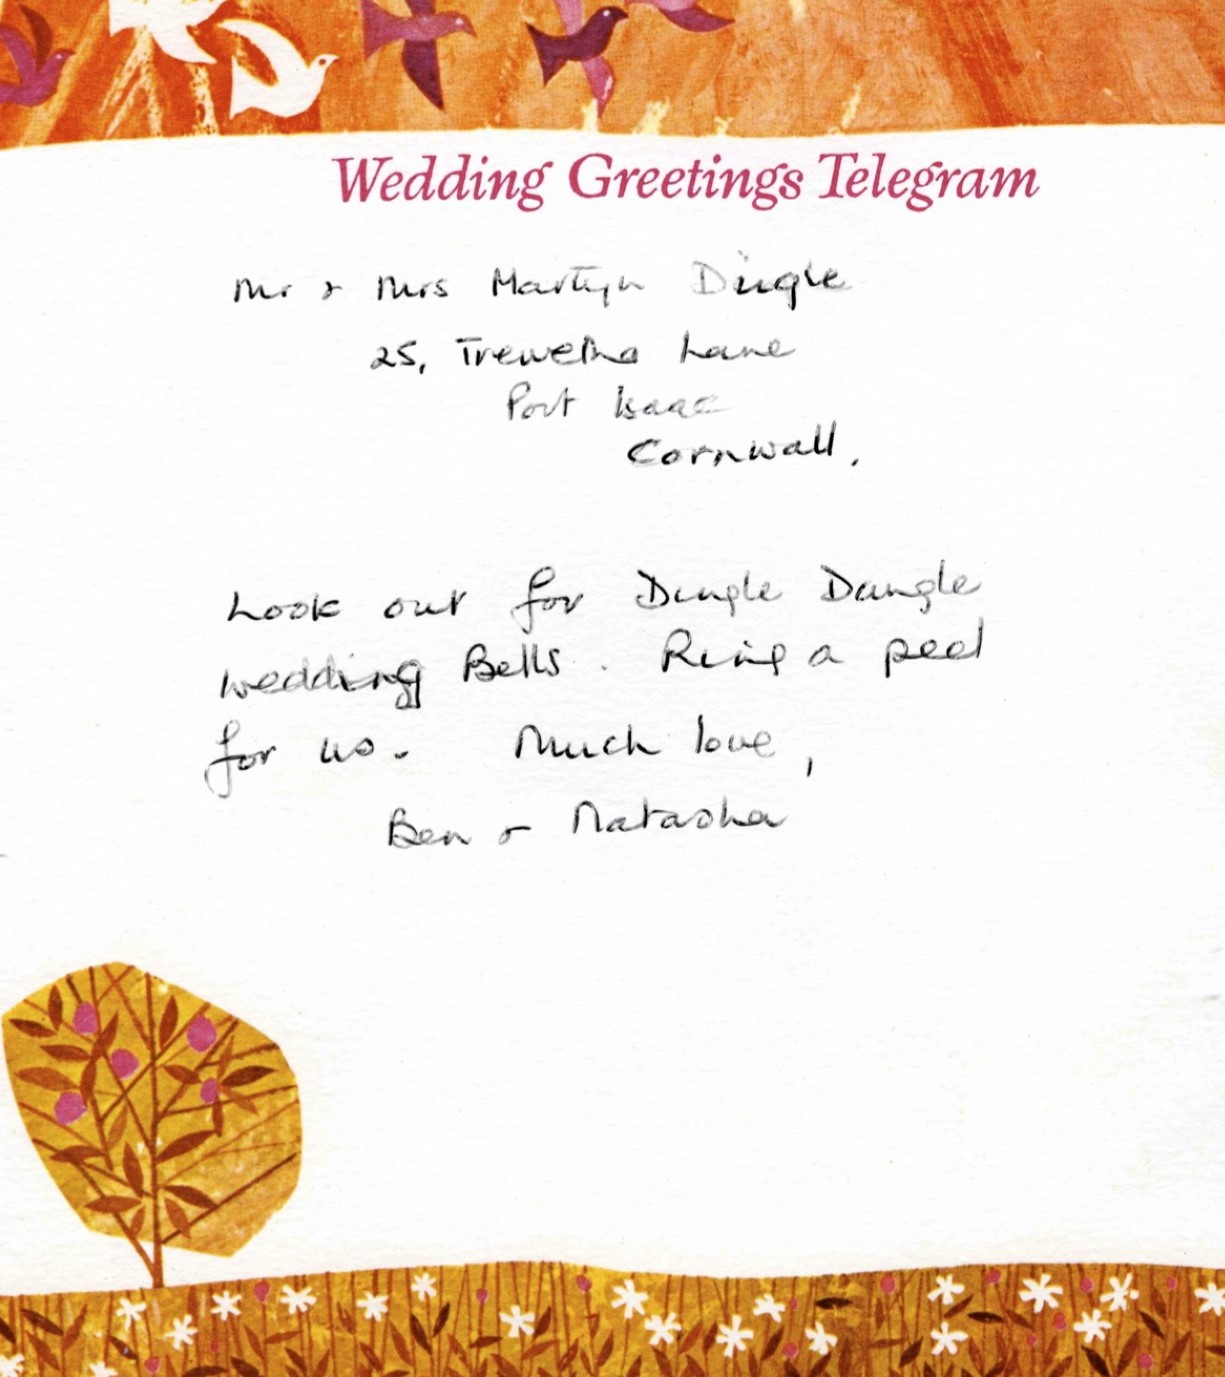 Wedding Greetings Telegram
Mr & Mrs Martyn Dingle
25, Trewetha Lane
Port Isaac
Cornwall,
Look out for Dingle Dangle
wedding Bells. Ring a peel
for us. Much love,
Ben & Natasha